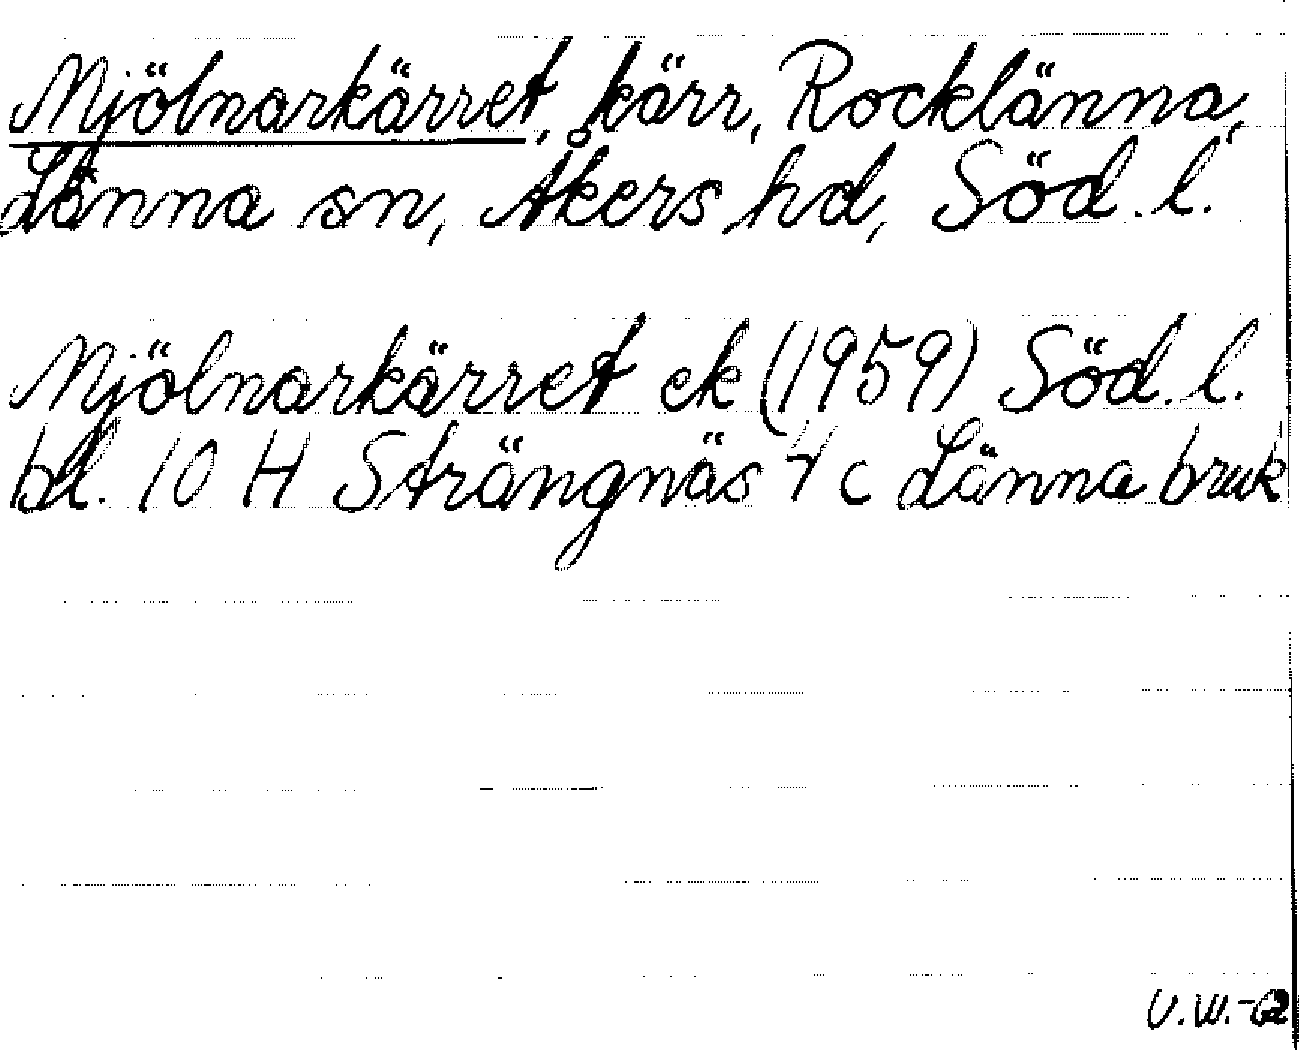 Mjölnarkärret, kärr, Rocklänna,
Länna sn, Åkers hd, Söd. l.
Mjölnarkärret ek (1959) Söd. l.
bl. 10 H Strängnäs 4 c Länna bruk
U.W.-62